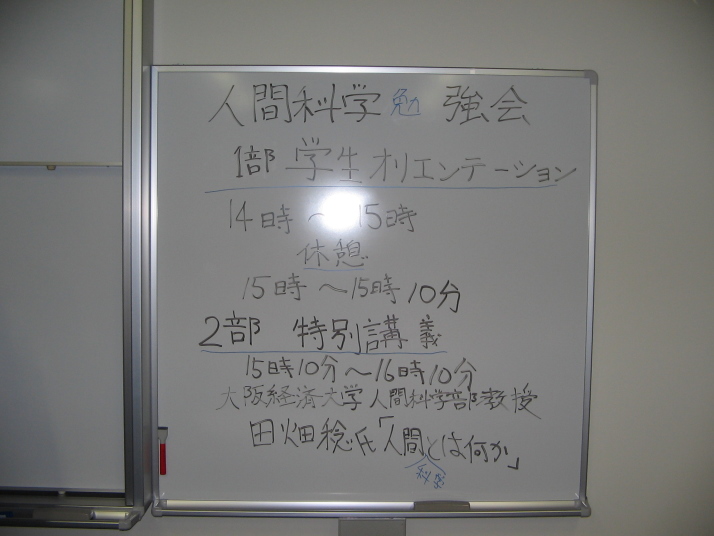 人間科学勉強会
1部 学生オリエンテーション
14時〜15時
休憩
15時〜15時10分
2部 特別講義
15時10分〜16時10分
大阪経済大学人間科学部教授
田畑稔氏「人間科学とは何か」